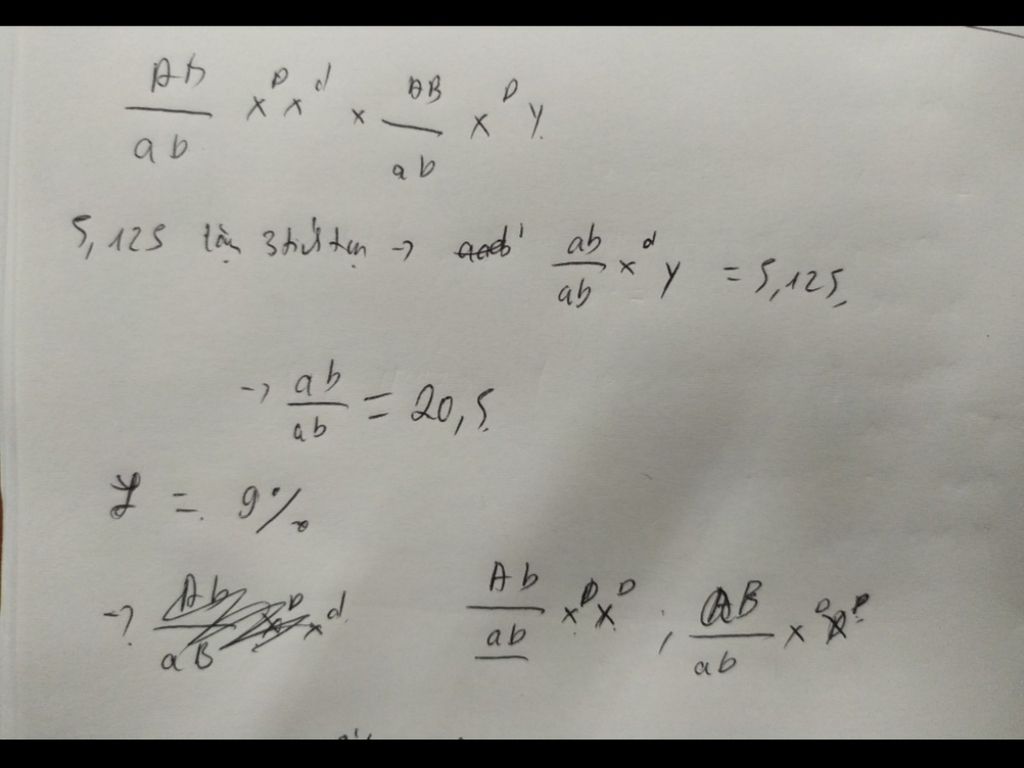 Ab/ab X^D X^d x AB/ab X^D Y
5,125 lặn 3 tính trạng -> ab/ab X^d Y = 5,125
-> ab/ab = 20,5
f = 9%
-> Ab/aB X^D X^d Ab/ab X^D X^D ; AB/ab X^D X^D